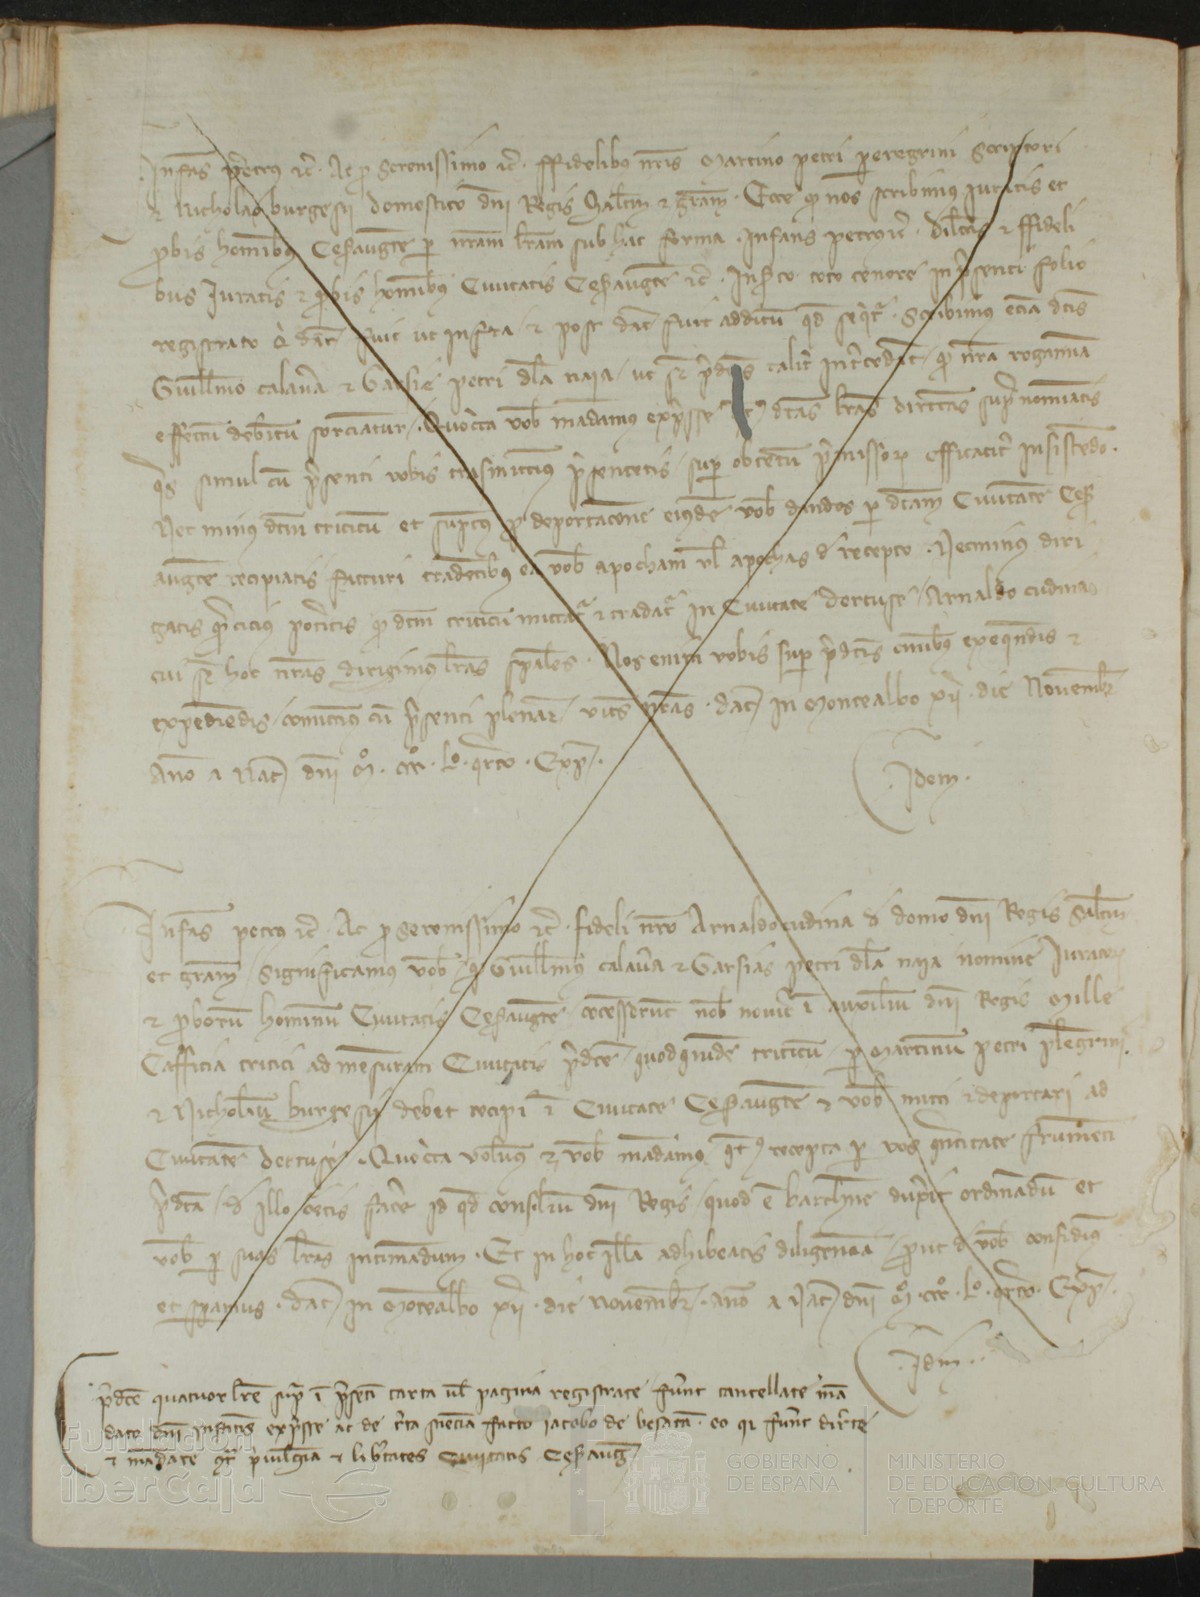 Infans petrus etc. Ac pro Serenissimo etc. ffidelibus nris Martino petri peregrini Scriptori
et Nicholao burgesii domestico dni Regis Saltm et gram. Ecce quod nos scribimus Juratis et
probis hominibus Cesarauguste per nram lram sub hac forma. Infans petrus etc. dilectis et ffideli
bus Juratis et probis hominibus Civitatis Cesarauguste etc. toto tenore in presenti folio
registrato dat fuit ut infra et post dat fuit additum quod sequitur. Scribimus etiam dictis
Guillmo calavera et Garsie petri dla naia ut super predictis taliter intercedant quod nra rogamina
effectum debitum sorciantur. Quocirca vob mandamus expresse dictas lras directas supra nominatis
quas simul cum presenti vobis transmittimus presentetis super obtentu premissorum efficaciter insistendo.
Nec minus dictum triticum et sumptus pro deportacione eiusdem vob dandos per dictam Civitatem Cesar
auguste recipiatis facturi tradentibus ea vob apocham vel apochas de recepto. Necminus diri
gatis quod dictum triticum mittatur et tradatur in Civitate dertuse Arnaldo cudina
cui super hoc nras dirigimus lras speciales. Nos enim vobis super predictis omnibus exequendis et
expediendis comittimus cum presenti plenarie vices nras. dat in Montealbo xii die Novembr
Anno a Nat dni M. ccc. Lo. qrto. Exp.
Idem.
Infans petrus etc. Ac pro Serenissimo etc. fideli nro Arnaldo cudina de domo dni Regis Saltm
et gram. Significamus vob quod Guillmus calavera et Garsias petri dla naia nomine Juratorum
et proborum hominum Civitatis Cesarauguste concesserunt nob noviter in auxilium dni Regis Mille
Cafficia tritici ad mensuram Civitatis predicte quodquidem triticum per Martinum petri peregrini
et Nicholaum burgesii debet recipi in Civitate Cesarauguste et vob mitti et deportari ad
Civitatem dertuse. Quocirca volumus et vob mandamus recepta per vos quantitate frumenti
predicta de illo facere id quod consilium dni Regis quod est barchinone duxerit ordinandum et
vob per suas lras intimandum. Et in hoc illam adhibeatis diligenciam prout de vob confidimus
et speramus. dat in Montealbo xii die novembr. anno a Nat dni M. ccc. Lo. qrto. Exp.
Idem.
predicte quatuor lre supra in presenti carta vel pagina registrate fuerunt cancellate man
dato dni infantis expresse ac de certa sciencia facto Jacobo de besanta eo quia fuerunt directe
et mandate contra privilegia et libertates Civitatis Cesaraug
Fundación
iberCaja
GOBIERNO
DE ESPAÑA
MINISTERIO
DE EDUCACIÓN, CULTURA
Y DEPORTE